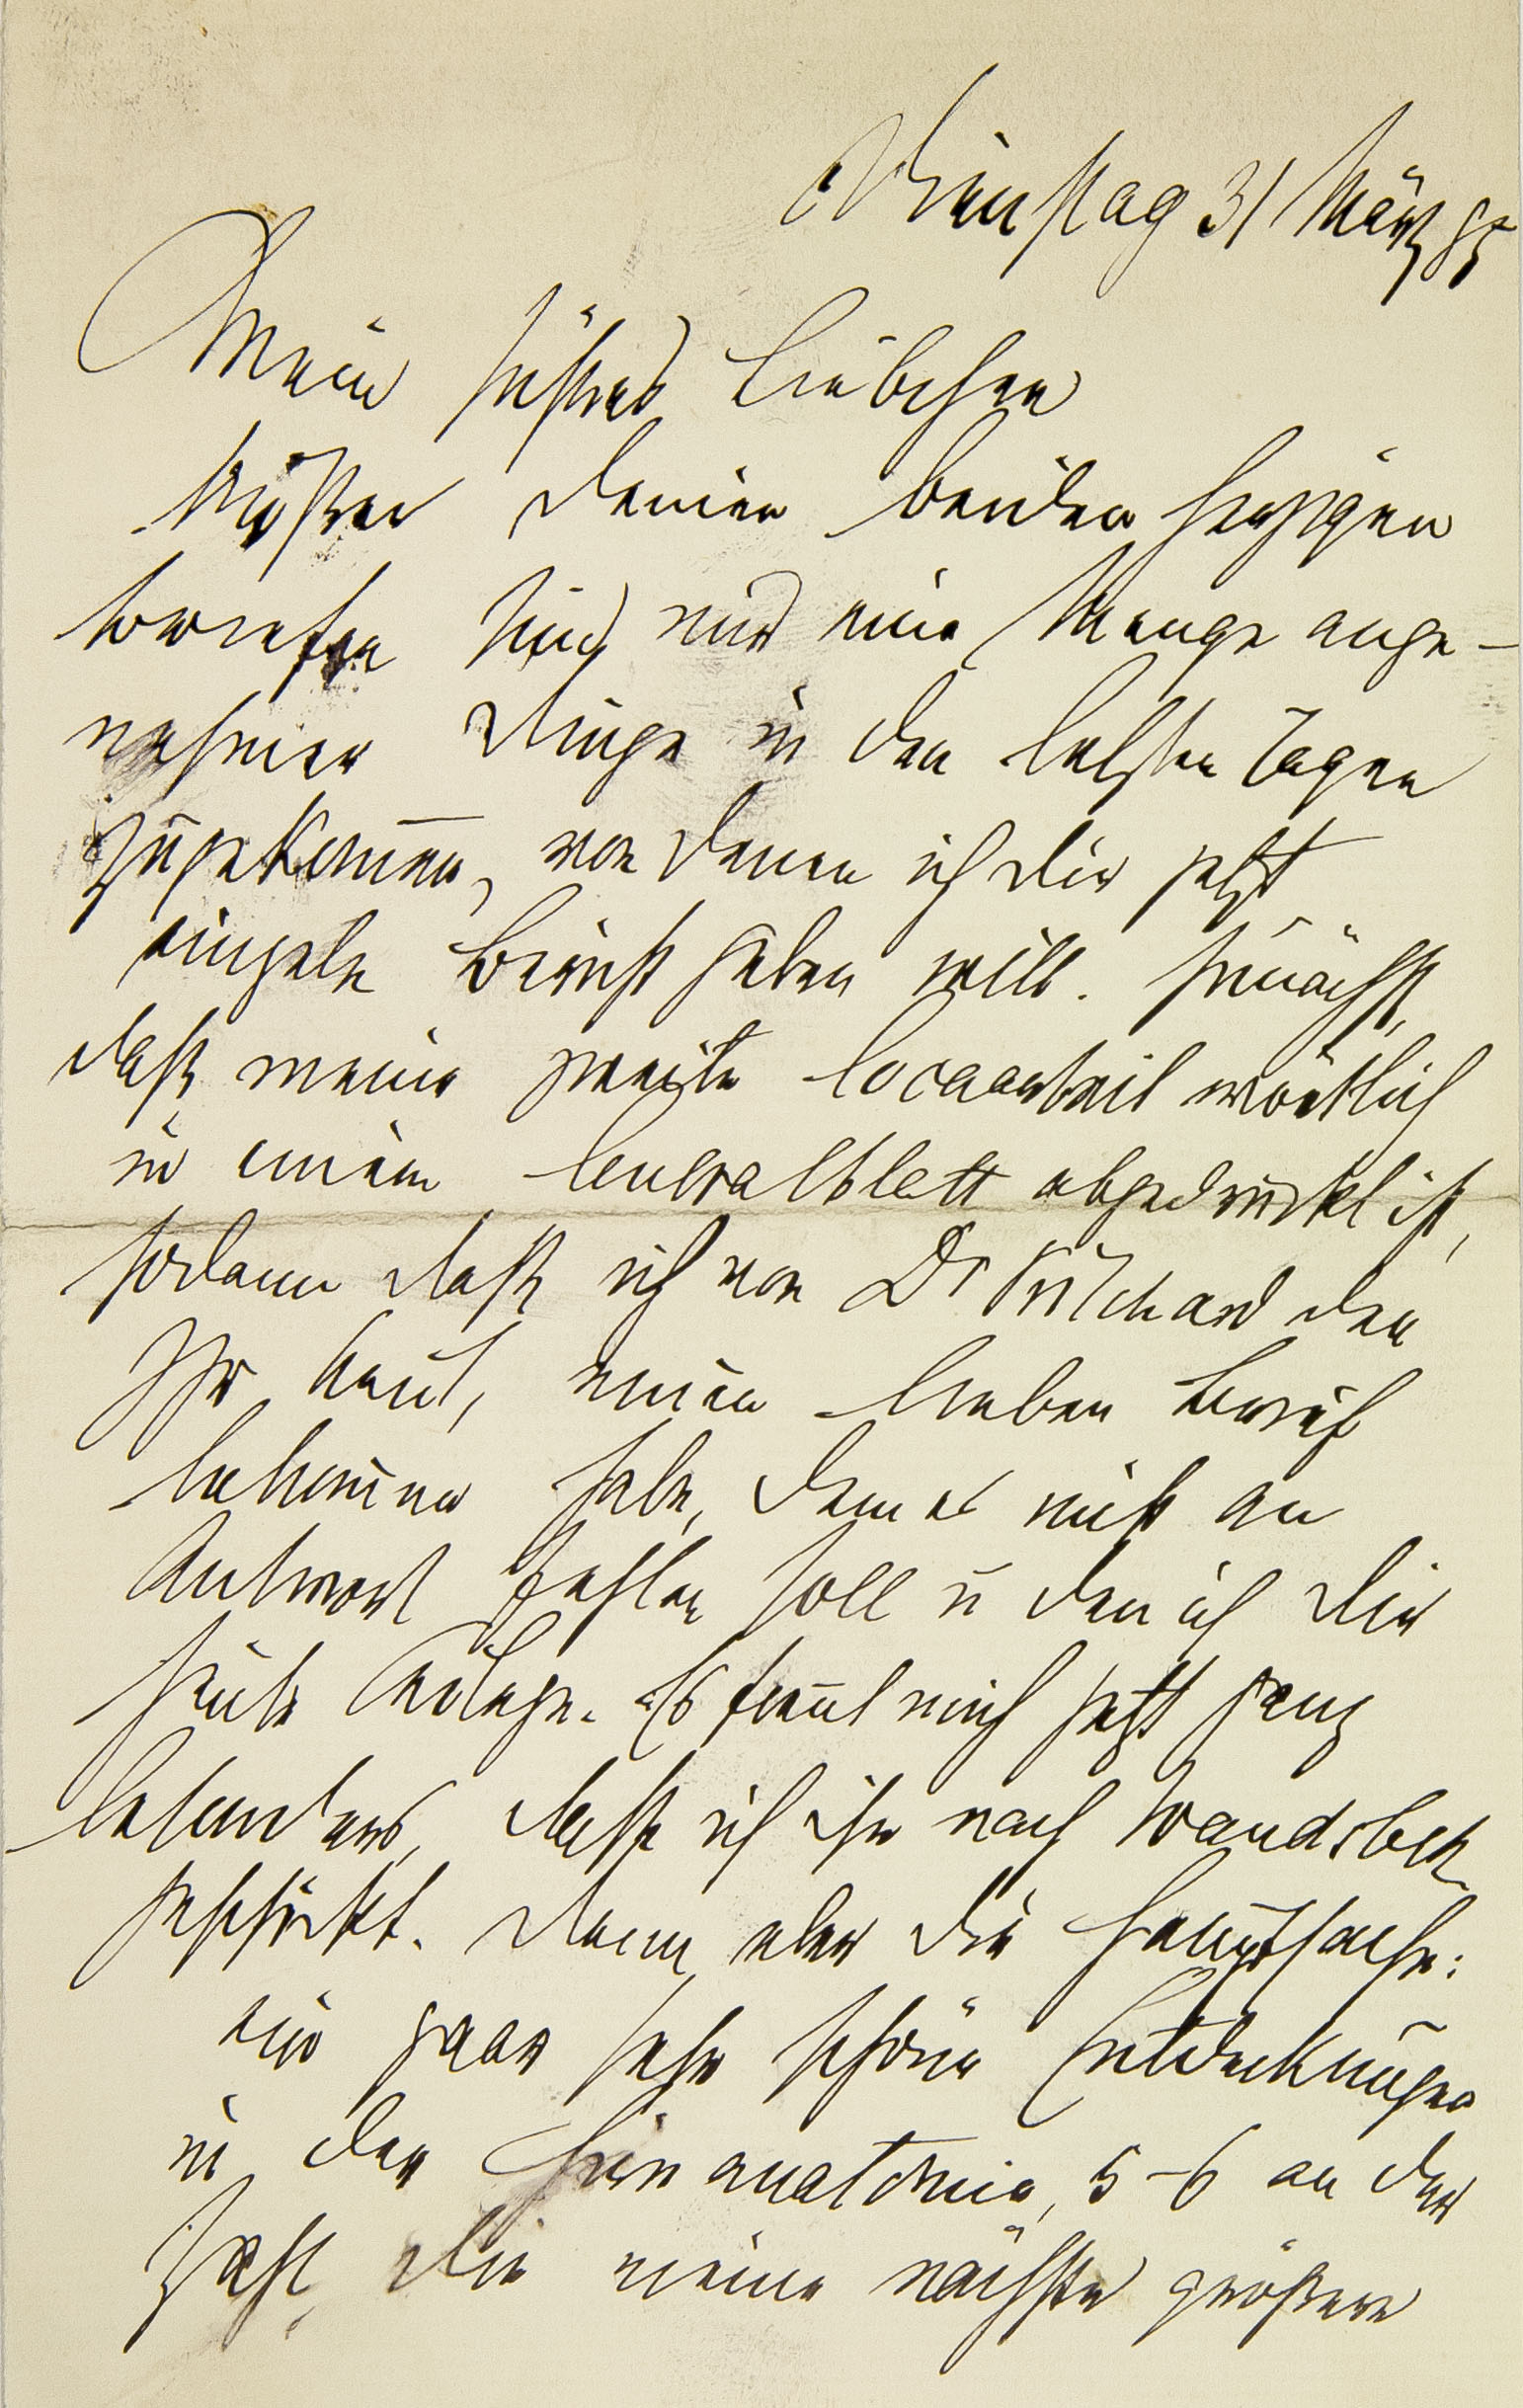 Dienstag 31 März 85
Mein süßes Liebchen
Außer Deinen beiden herzigen
Briefen sind mir eine Menge ange-
nehmer Dinge in den letzten Tagen
zugekommen, von denen ich Dir jetzt
einzeln Bericht geben will. Zunächst,
daß meine zweite Cocaarbeit wörtlich
in einem Centralblatt abgedruckt ist,
sodann daß ich von Dr den
einen lieben Brief
bekommen habe, dem es nicht an
Antwort fehlen soll u den ich Dir
heute beilege. Es freut mich jetzt ganz
besonders, daß ich ihn nach Wandsbek
geschickt. Dann aber die Hauptsache:
ein paar sehr schöne Entdeckungen
in der Hirnanatomie, 5-6 an der
Zahl, die meine nächste größere